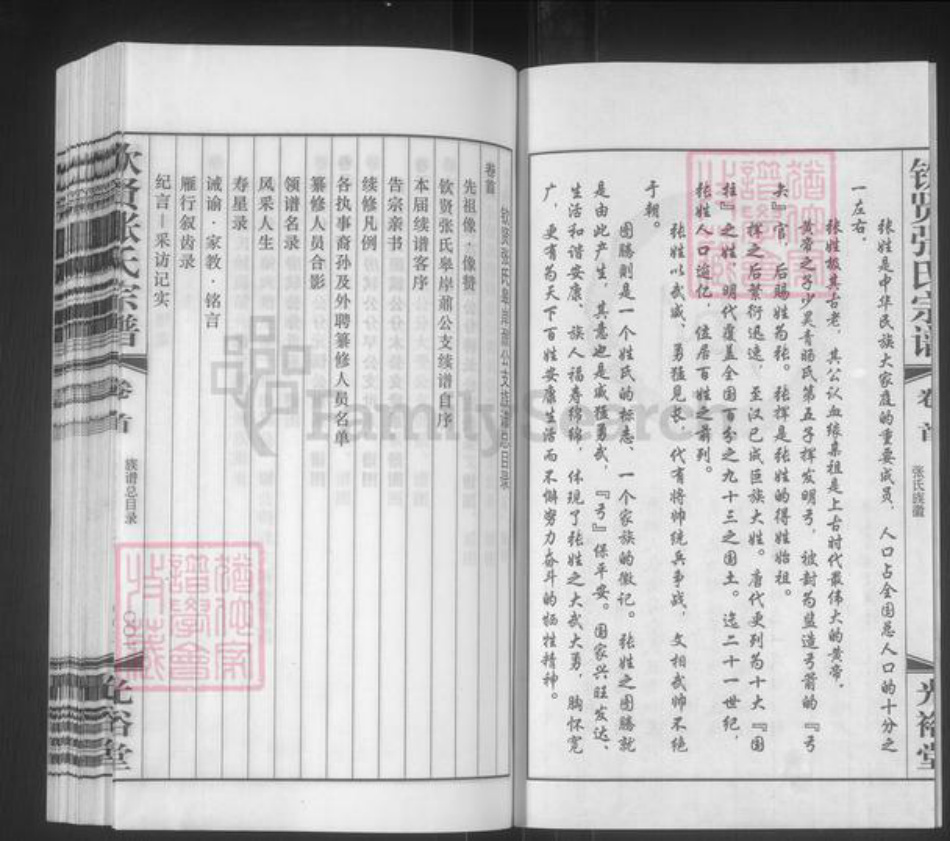 钦贤张氏宗谱
卷首
张氏族徽
光裕堂
张姓是中华民族大家庭的重要成员，人口占全国总人口的十分之
一左右。
张姓极其古老，其公认血缘集祖是上古时代最伟大的黄帝。
黄帝之子少昊青阳氏第五子挥发明弓，被封为监造弓箭的『弓
矢』官，后赐姓为张。张挥是张姓的得姓始祖。
挥之后繁衍迅速，至汉已成巨族大姓。唐代更列为十大『国
柱』之姓，明代覆盖全国百分之九十三之国土。迄二十一世纪，
张姓人口逾亿，位居百姓之前列。
张姓以武威、勇猛见长，代有将帅统兵争战，文相武帅不绝
于朝。
图腾则是一个姓氏的标志、一个家族的徽记。张姓之图腾就
是由此产生，其意也是威猛勇武，『弓』保平安。国家兴旺发达、
生活和谐安康、族人福寿绵绵，体现了张姓之大武大勇，胸怀宽
广，更有为天下百姓安康生活而不懈努力奋斗的牺牲精神。
钦贤张氏皋岸鼐公支族谱总目录
卷首
先祖像·像赞
钦贤张氏皋岸鼐公支续谱自序
本届续谱客序
告宗亲书
续修凡例
各执事裔孙及外聘纂修人员名单
纂修人员合影
领谱名录
风采人生
寿星录
诫谕·家教·铭言
雁行叙齿录
纪言—采访记实
钦贤张氏宗谱
卷首
族谱总目录
光裕堂
FamilySearch